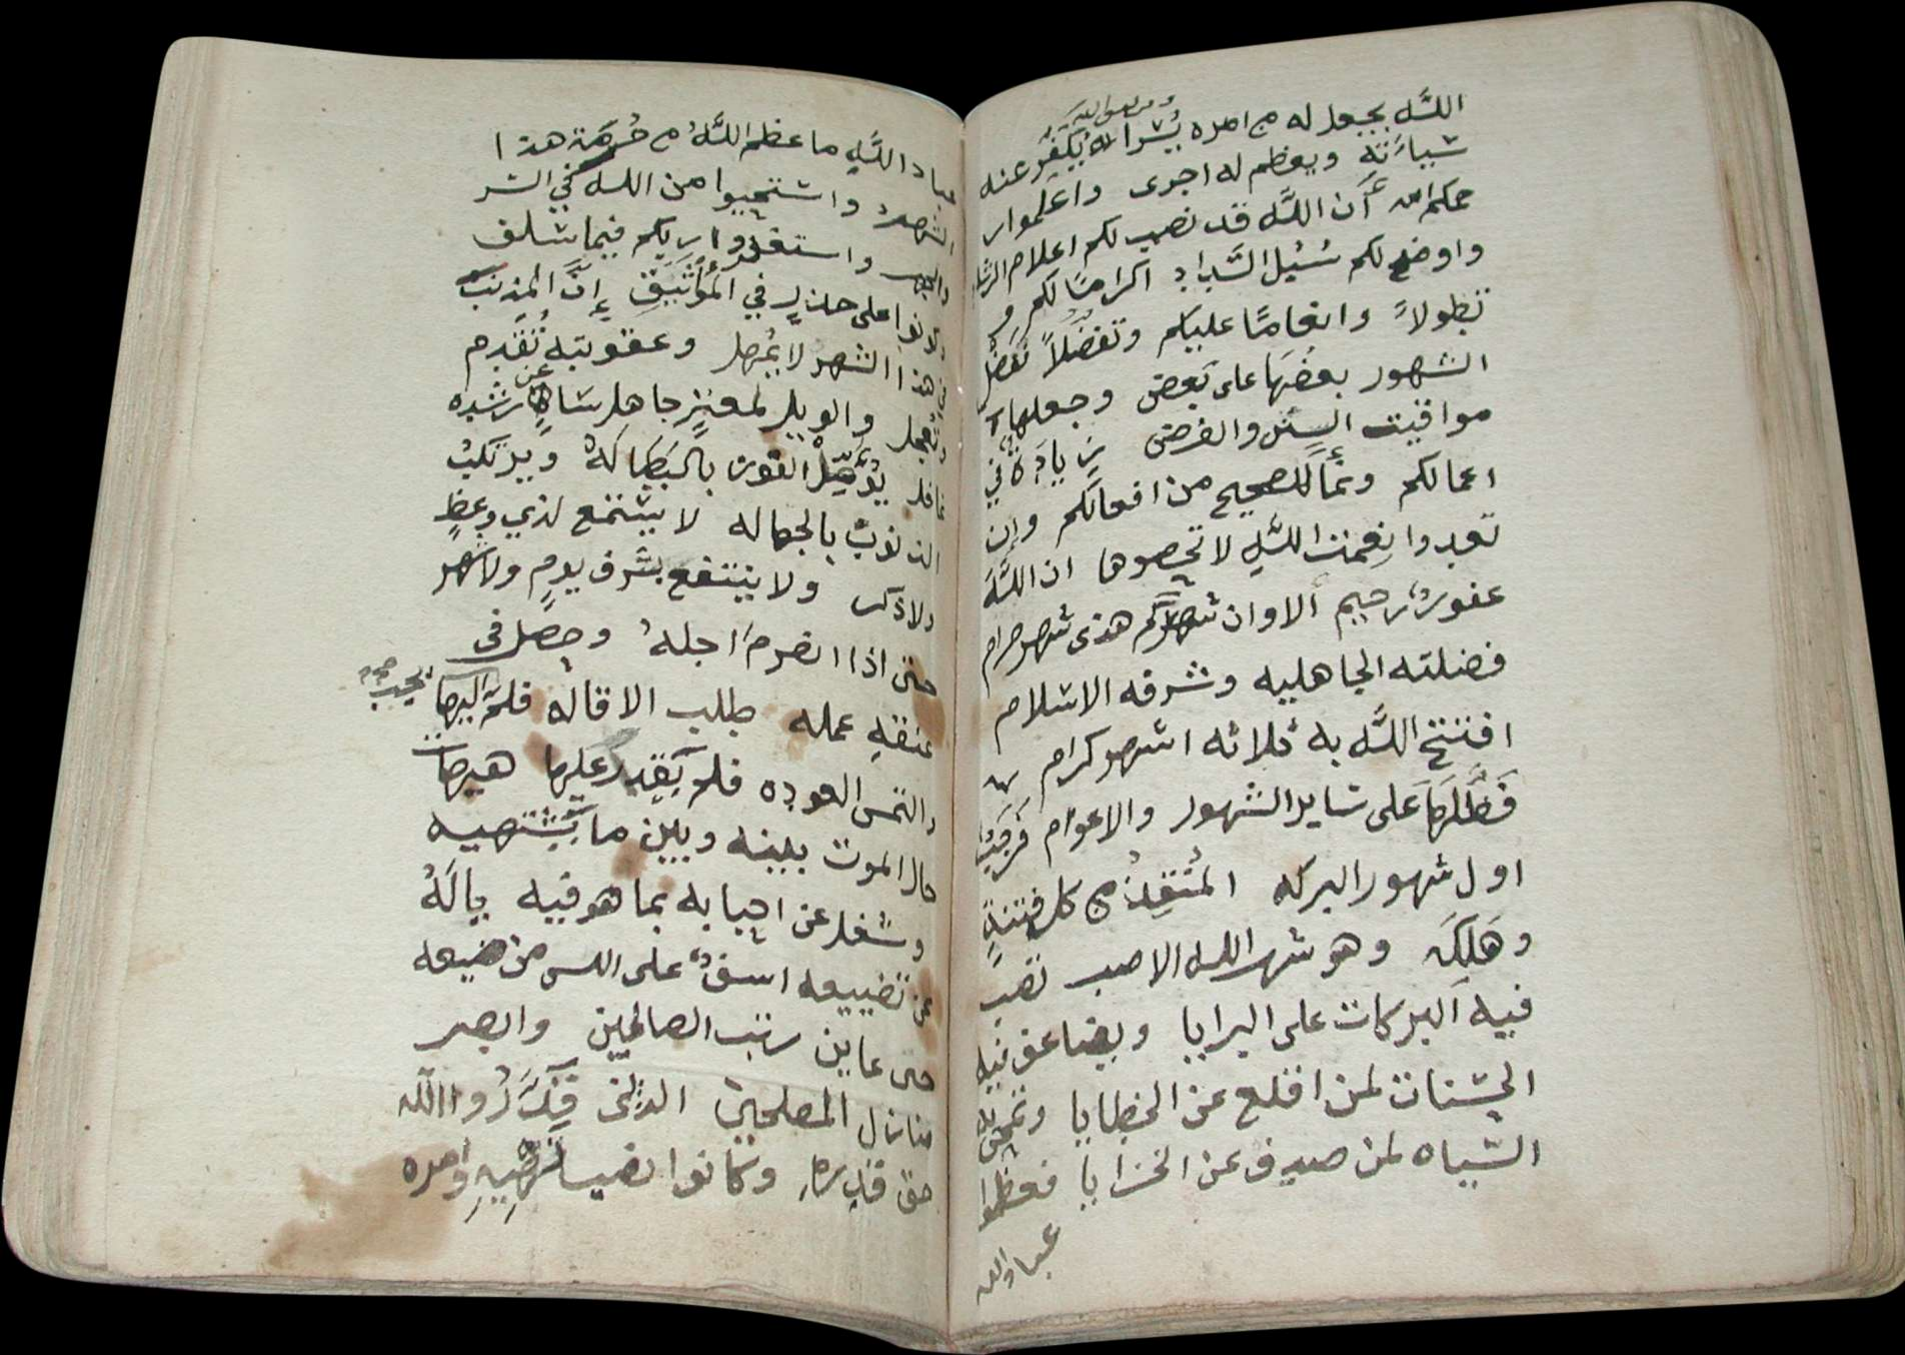 ومن يتق الله
الله يجعل له من امره يسرا الله يكفر عنه
سياته ويعظم له اجرى واعلموا ر
حمكم الله أن الله قد نصب لكم اعلام الرشاد
واوضح لكم سُبُل السَّداد اكرامًا لكم و
تطولاً وانعامًا عليكم وتفضلاً فضل
الشهور بعضها على بعض وجعلها
مواقيت السنن والفرض زيادة في
اعمالكم ونمأ للصحيح من افعالكم وإن
تعدوا نعمت الله لا تحصوها ان الله
غفور رحيم ألا وان شهركم هذى شهر حرام
فضلته الجاهليه وشرفه الاسلام
افتتح الله به ثلاثه اشهر كرام
فضّلها على ساير الشهور والاعوام فرجب
اول شهور البركه المنقذ من كل فتنةٍ
وهلكه وهو شهر الله الاصب تصب
فيه البركات على البرايا ويضاعف فيه
الحسنات لمن اقلع عن الخطايا وتمحى
السياه لمن صدف عن الخزايا فعظموا
عباد الله
عباد الله ما عظم اللهُ من حُرمَة هذا
الشهر واستحيوا من الله في السر
والجهر واستغفروا ربكم فيما سلف
وكونوا على حذرٍ في المؤتنف إنَّ المذنب
في هذا الشهر لا يُمهل وعقوبته تُقدم
وتعجل والويل لمغترٍ جاهل ساهٍ عن رشده
غافل يؤمّل الفوز بالبطاله ويرتكب
الذنوب بالجهاله لا يستمع لذي وعظٍ
ولا ذكر ولا ينتفع بشرف يومٍ ولا شهر
حتى اذا انصرمَ اجلهُ وحصل في
عنقه عمله طلب الاقاله فلم اليها يجب صح
والتمس العوده فلم يَقدِر عليها هيهات
حال الموت بينه وبين ما يشتهيه
وشغل عن احبابه بما هو فيه يالهُ
عن تضييعه اسفٌ على الله من ضيعه
حتى عاين رتب الصالحين وابصر
منازل المصلحين الذين قدَّرُوا الله
حق قدره وكانوا نصب نهيهِ وامره